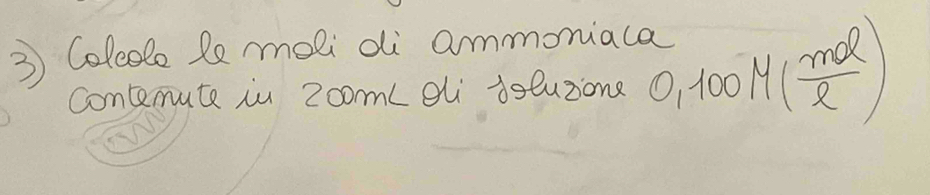 3) Calcola le moli di ammoniaca
contenute in 200mL di soluzione 0,100 M (mol/l)